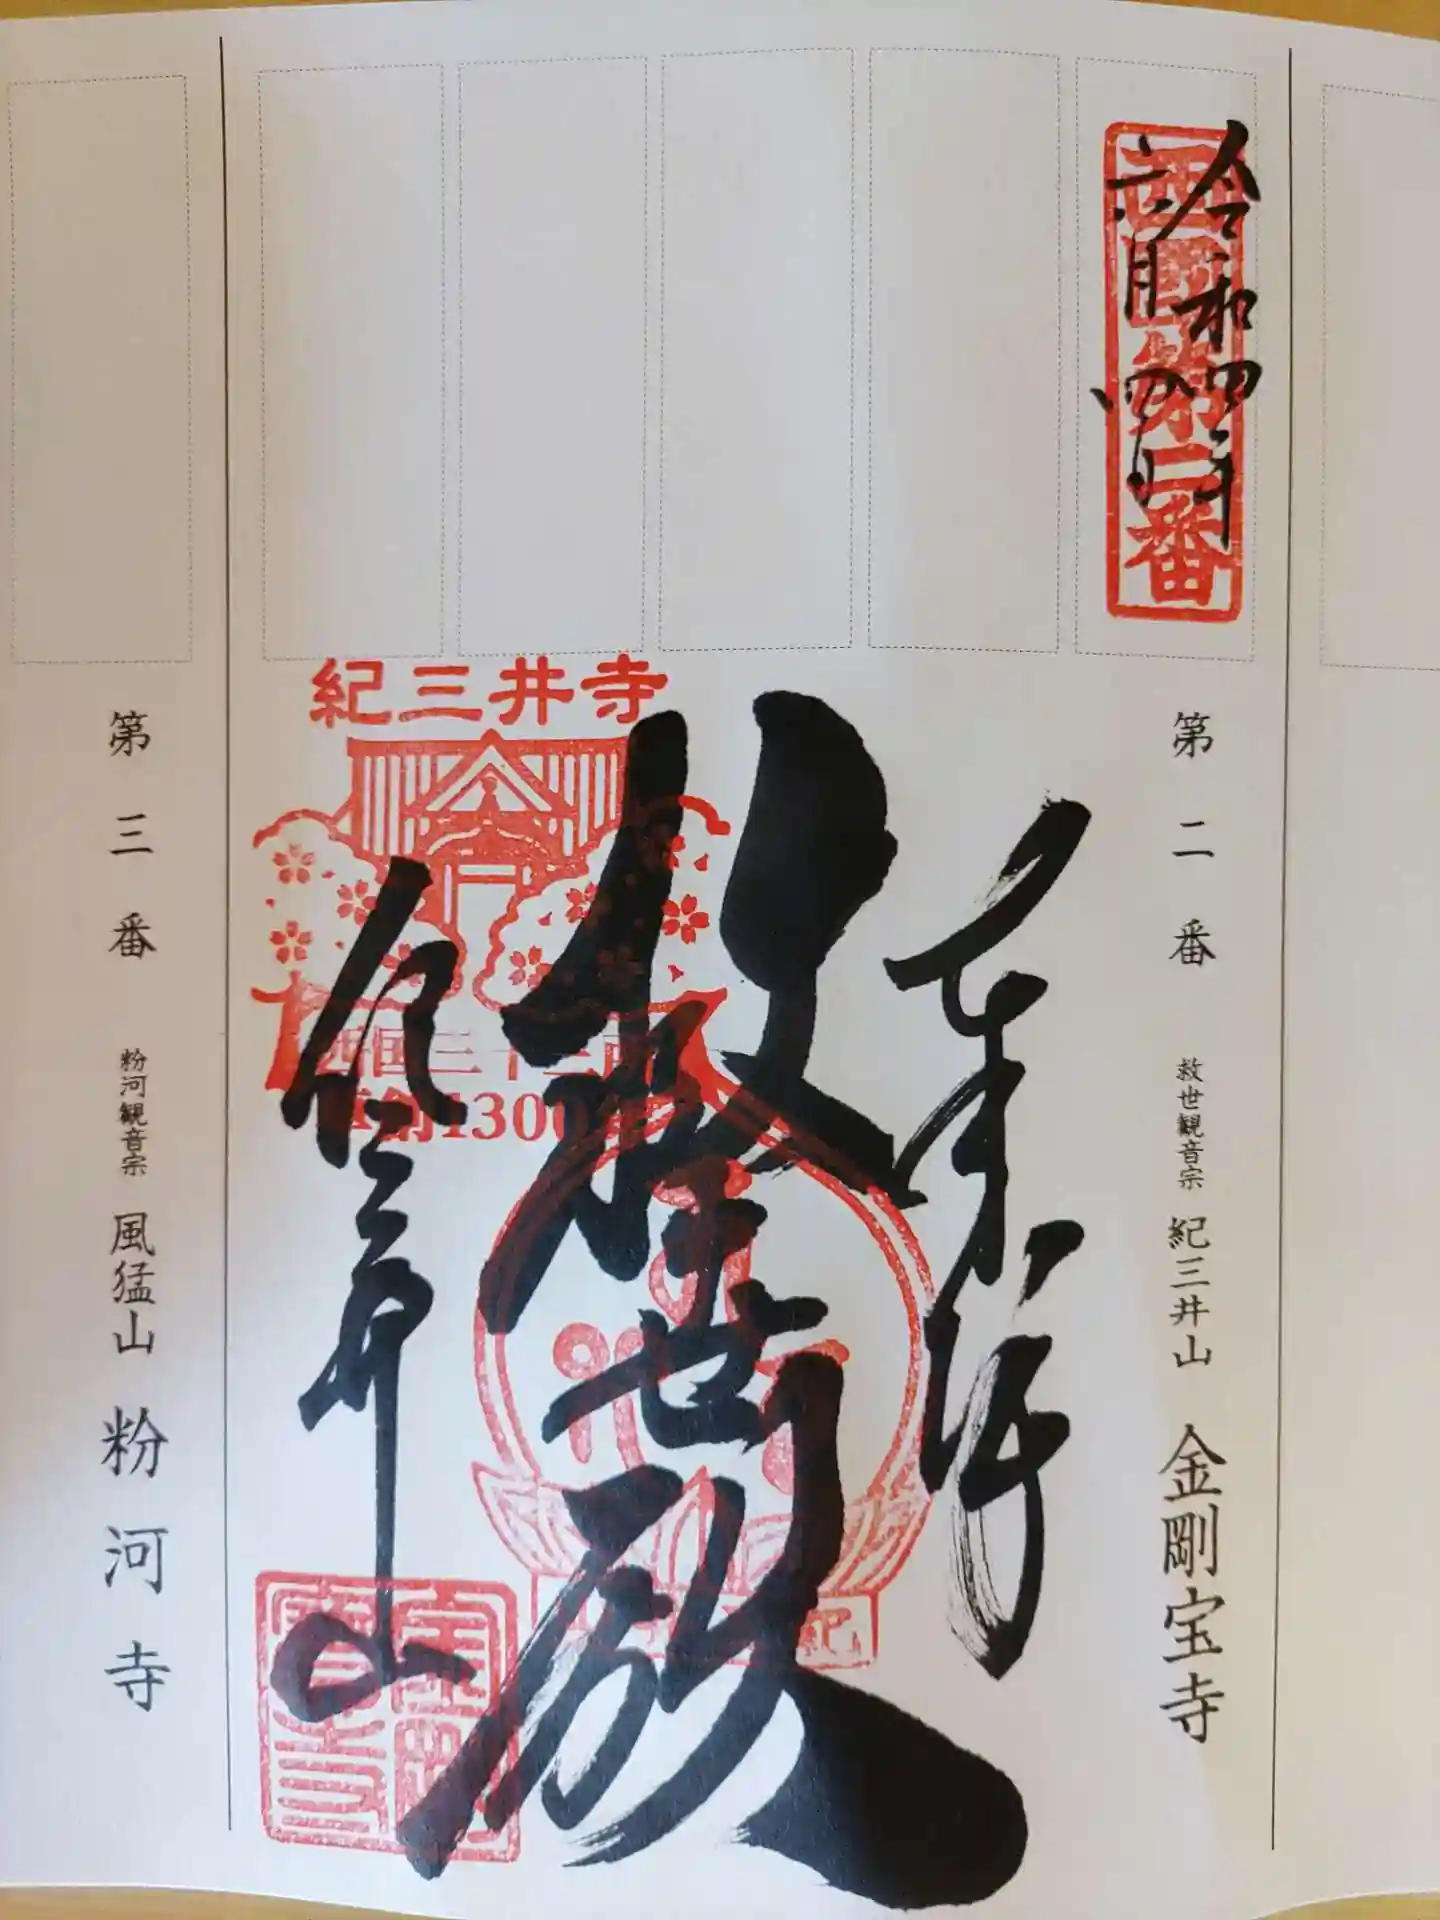 令和四年
六月四日
西国第二番
第二番 救世観音宗 紀三井山 金剛宝寺
奉拝
救世殿
紀三井寺
紀三井寺
西国三十三所
草創1300年
第三番 粉河観音宗 風猛山 粉河寺